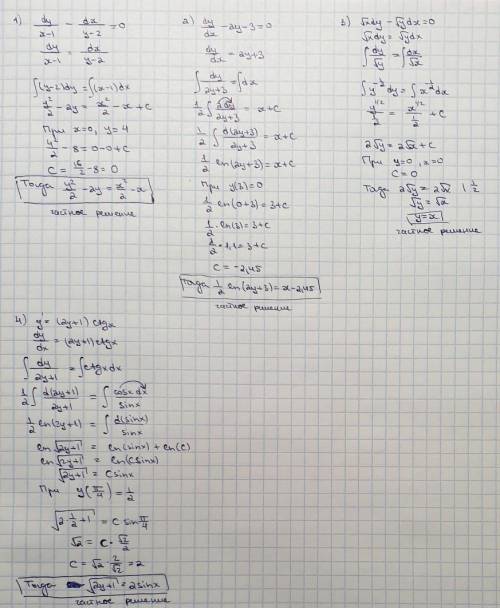 1) dy/(x-1) - dx/(y-2) = 0
dy/(x-1) = dx/(y-2)
∫(y-2)dy = ∫(x-1)dx
y²/2 - 2y = x²/2 - x + C
При x=0, y=4
y²/2 - 8 = 0 - 0 + C
C = 16/2 - 8 = 0
Тогда y²/2 - 2y = x²/2 - x
частное решение
2) dy/dx - 2y - 3 = 0
dy/dx = 2y+3
∫ dy/(2y+3) = ∫dx
1/2 ∫ 2dy/(2y+3) = x+C
1/2 ∫ d(2y+3)/(2y+3) = x+C
1/2 ln(2y+3) = x+C
При y(3)=0
1/2 ln(0+3) = 3+C
1/2 · ln(3) = 3+C
1/2 · 1,1 = 3+C
C = -2,45
Тогда 1/2 ln(2y+3) = x-2,45
частное решение
3) √x dy - √y dx = 0
√x dy = √y dx
∫ dy/√y = ∫ dx/√x
∫ y^(-1/2) dy = ∫ x^(-1/2) dx
y^(1/2)/(1/2) = x^(1/2)/(1/2) + C
2√y = 2√x + C
При y=0, x=0
C = 0
Тогда 2√y = 2√x | 1/2
√y = √x
y=x
частное решение
4) y' = (2y+1) ctgx
dy/dx = (2y+1) ctgx
∫ dy/(2y+1) = ∫ ctgx dx
1/2 ∫ d(2y+1)/(2y+1) = ∫ cosx dx/sinx
1/2 ln(2y+1) = ∫ d(sinx)/sinx
ln √(2y+1) = ln(sinx) + ln(C)
ln √(2y+1) = ln(Csinx)
√(2y+1) = Csinx
При y(π/4) = 1/2
√(2·1/2+1) = C sin π/4
√2 = C · √2/2
C = √2 · 2/√2 = 2
Тогда √(2y+1) = 2sinx
частное решение